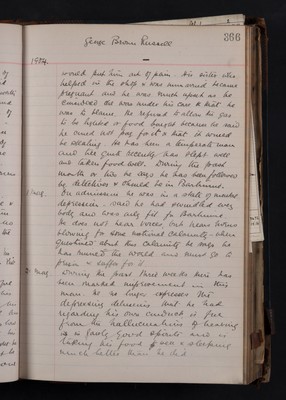 George Brown Russell
366
1904.
would put him out of pain. His sister who
helped in the shop & was unmarried became
pregnant and he was much upset as he
considered she was under his care & that he
was to blame. He refused to allow the gas
to be lighted or food bought because he said
he could not pay for it & that it would
be stealing. He has been a temperate man
and like until recently has slept well
and taken food well. During the past
month or two he says he has been followed
by detectives & should be in
On admission he was in a state of marked
depression. said he had swindled every
body and was only fit for
He does not hear voices, but hears horns
blowing for some national calamity. When
questioned about this calamity he says he
has ruined the world and must go to
prison & suffer for it.
During the past three weeks there has
been marked improvement in this
man. He no longer expresses the
depressing delusions that he had
regarding his own conduct is free
from his hallucinations of hearing
is in fairly good spirits and is
taking his food & sleeping
much better than he did